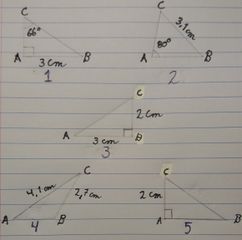 C
66°
A B
3 cm
1
C
3,1 cm
80°
A B
2
C
2 cm
A B
3 cm
3
C
4,1 cm
2,7 cm
A B
4
C
2 cm
A B
5